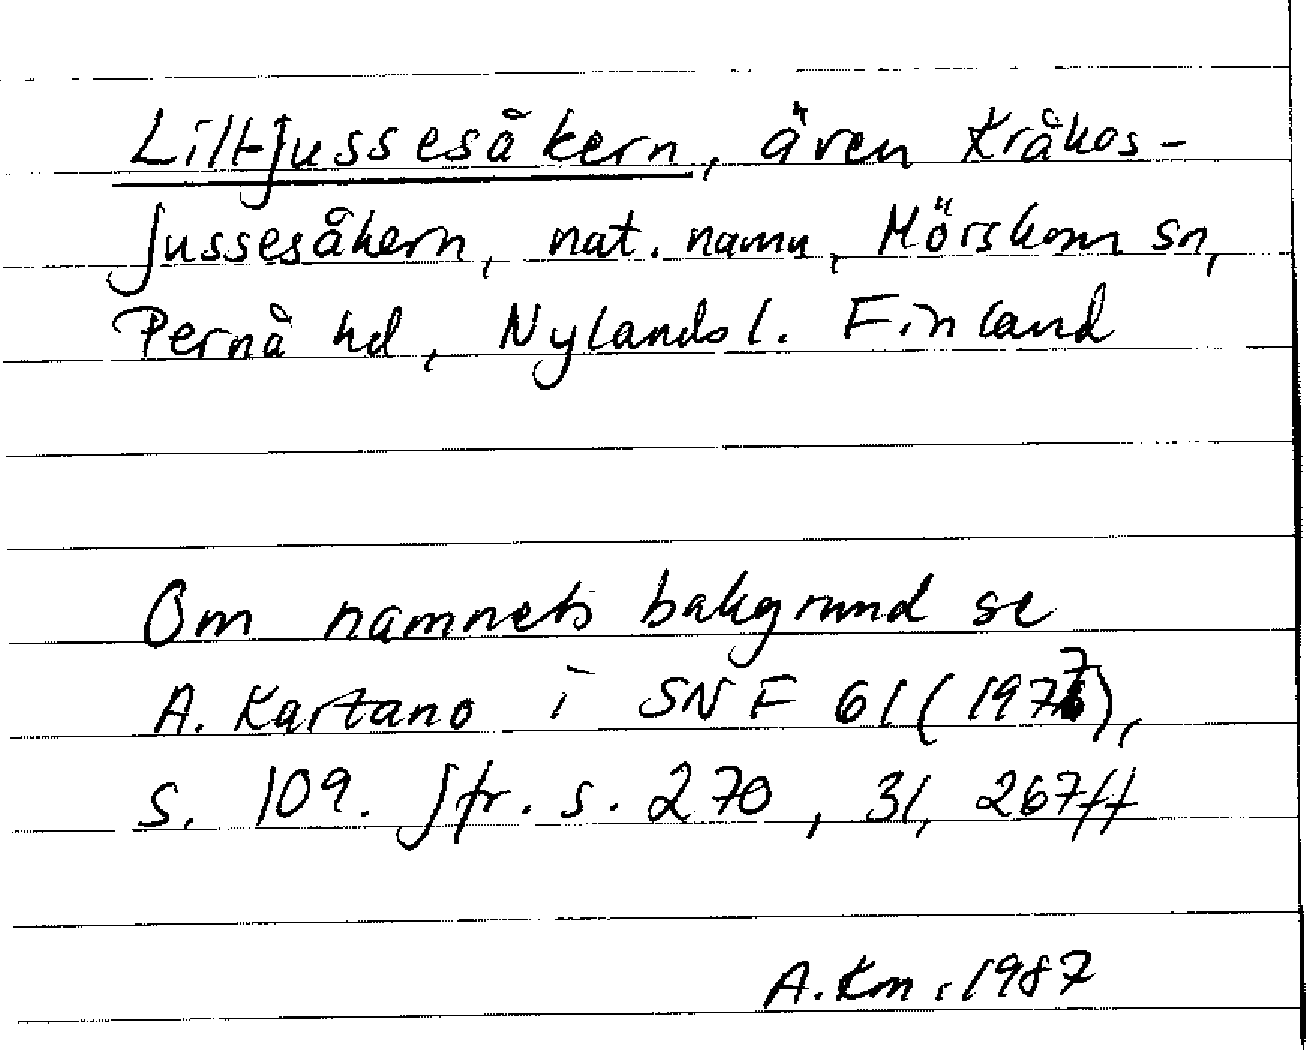 Liltjussesåkern, även Kråkos-
jussesåkern, nat. namn, Mörskom sn,
Pernå hd, Nylands l. Finland
Om namnets bakgrund se
A. Kartano i SNF 61 (1977),
s. 109. Jfr. s. 270, 31, 267ff
A. Km. 1987